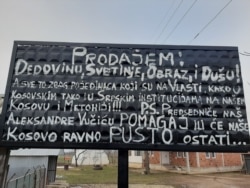 PRODAJEM:
DEDOVINU, SVETINJE, OBRAZ, I DUŠU!
A SVE TO ZBOG POJEDINACA KOJI SU NA VLASTI, KAKO U
KOSOVSKIM TAKO I U SRPSKIM INSTITUCIJAMA NA NAŠEM
KOSOVU I METOHIJI!!! PS PREDSEDNIČE NAŠ
ALEKSANDRE VUČIĆU POMAGAJ ILI ĆE NAŠE
KOSOVO RAVNO PUSTO OSTATI...